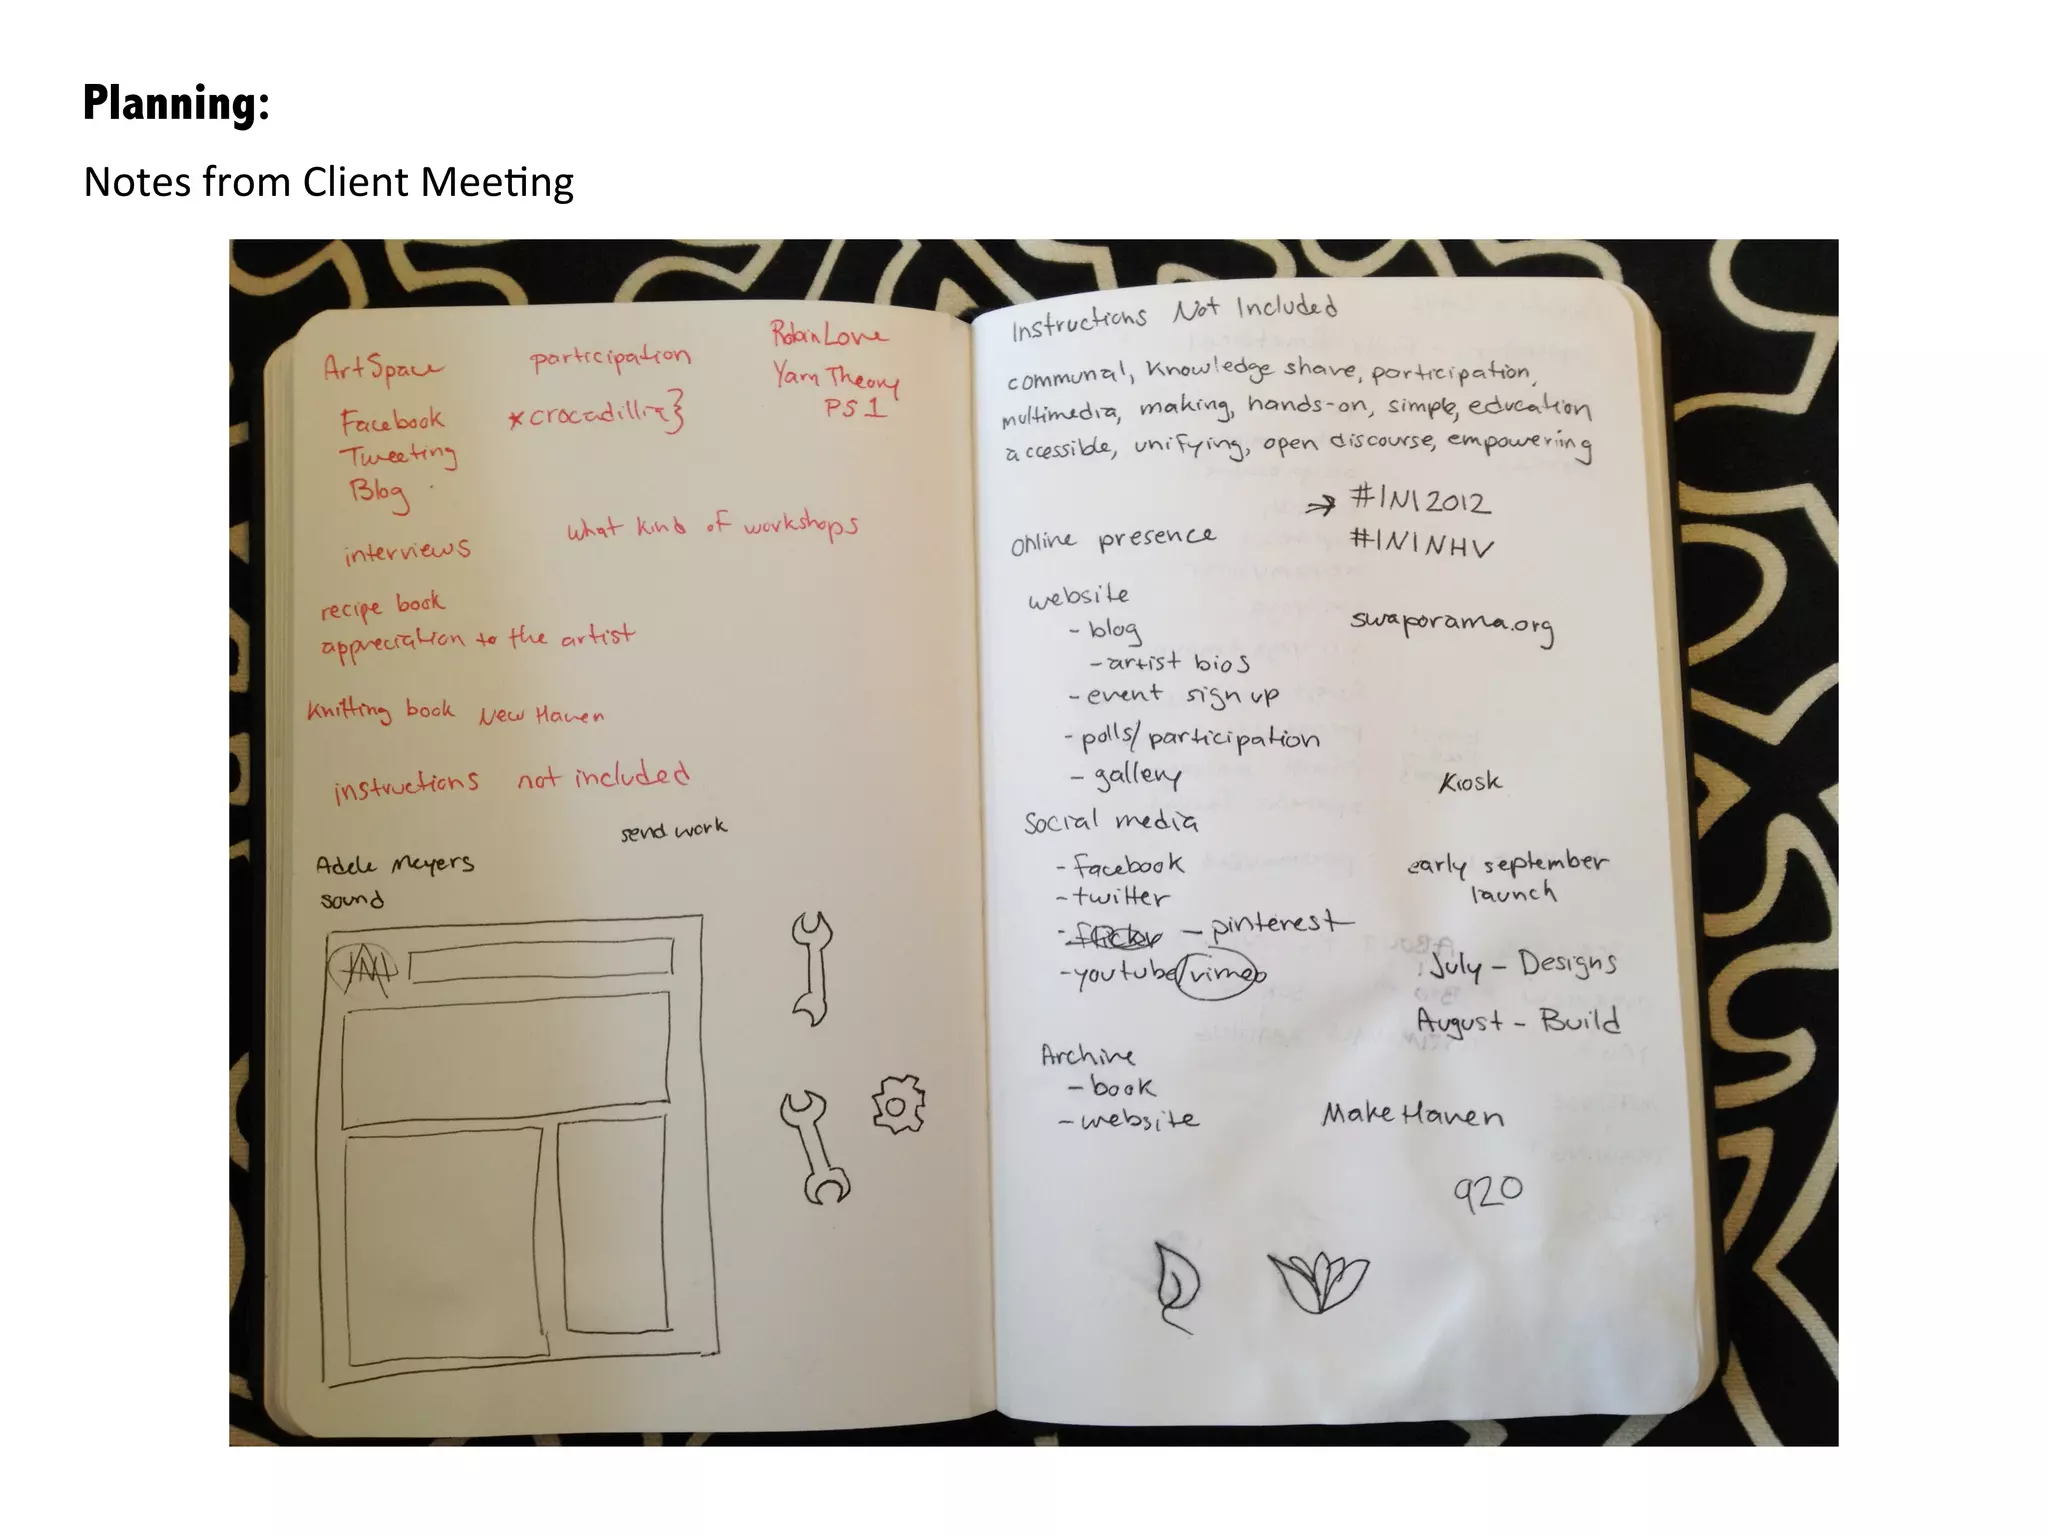 Planning:
Notes from Client Meeting
ArtSpace
participation
Robin Love
Yarn Theory
PS1
Facebook
*crocadillia}
Tweeting
Blog
what kind of workshops
interviews
recipe book
appreciation to the artist
Knitting book New Haven
instructions not included
send work
Adele Meyers
sound
INI
Instructions Not Included
communal, knowledge share, participation,
multimedia, making, hands-on, simple, education
accessible, unifying, open discourse, empowering
→ #INI2012
#ININHV
Online presence
website
- blog
- artist bios
- event sign up
- polls/participation
- gallery
swaporama.org
Kiosk
Social media
- facebook
- twitter
- flickr - pinterest
- youtube/vimeo
early september
launch
July - Designs
August - Build
Archive
- book
- website
MakeHaven
920